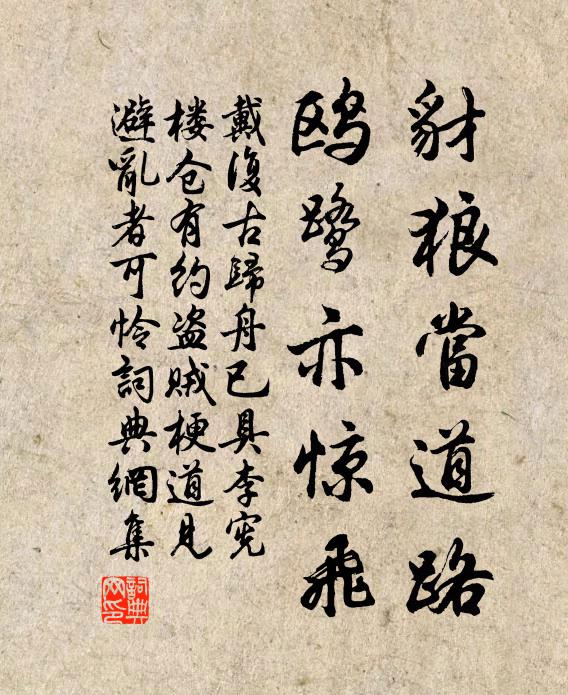 豺狼當道路
鸥鹭亦惊飛
戴復古歸舟已具李宪
楼仓有约盗贼梗道見
避亂者可怜詞典網集
詞典
网印